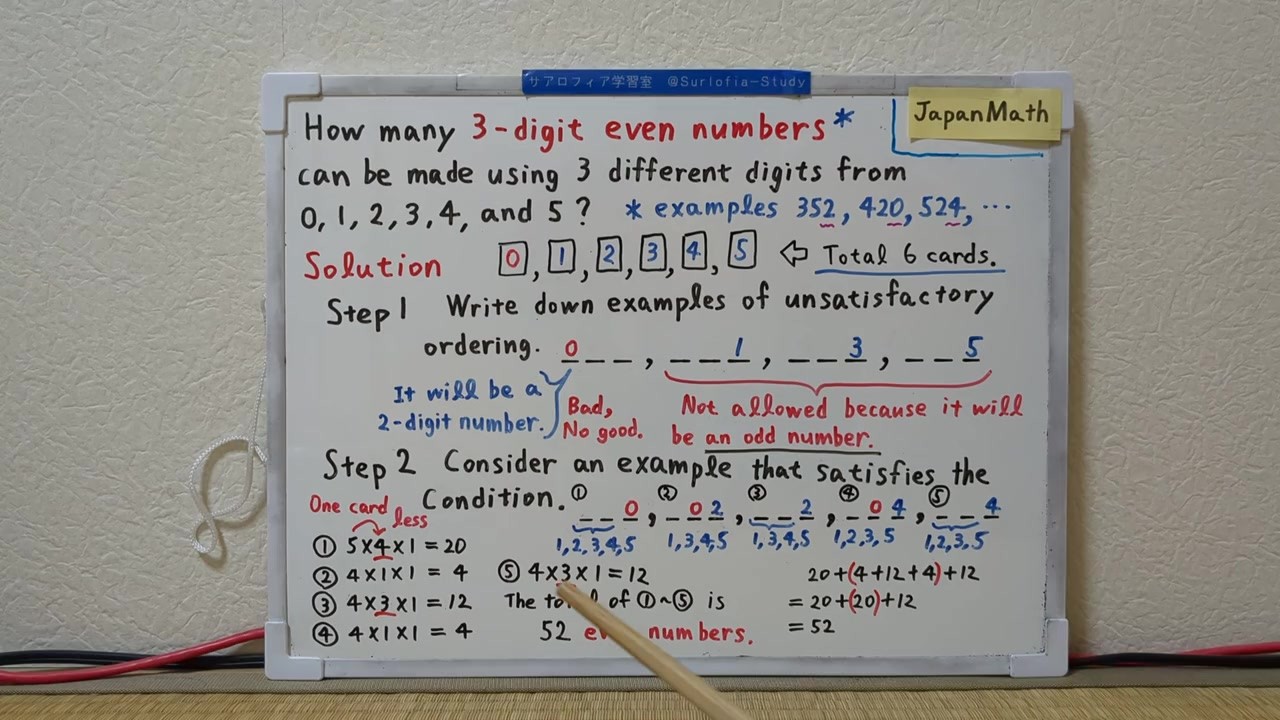 サアロフィア学習室 @Surlofia-Study
JapanMath
How many 3-digit even numbers*
can be made using 3 different digits from
0, 1, 2, 3, 4, and 5 ? * examples 352, 420, 524, ...
Solution 0, 1, 2, 3, 4, 5 ⇦ Total 6 cards.
Step 1 Write down examples of unsatisfactory
ordering. 0 _ _ , _ _ 1, _ _ 3, _ _ 5
It will be a
2-digit number.
Bad,
No good.
Not allowed because it will
be an odd number.
Step 2 Consider an example that satisfies the
Condition. ① _ _ 0, ② _ 0 2, ③ _ _ 2, ④ _ 0 4, ⑤ _ _ 4
1,2,3,4,5 1,3,4,5 1,3,4,5 1,2,3,5 1,2,3,5
One card
less
① 5×4×1 = 20
② 4×1×1 = 4
③ 4×3×1 = 12
④ 4×1×1 = 4
⑤ 4×3×1 = 12
The of ①~⑤ is
52 numbers.
20+(4+12+4)+12
= 20+(20)+12
= 52